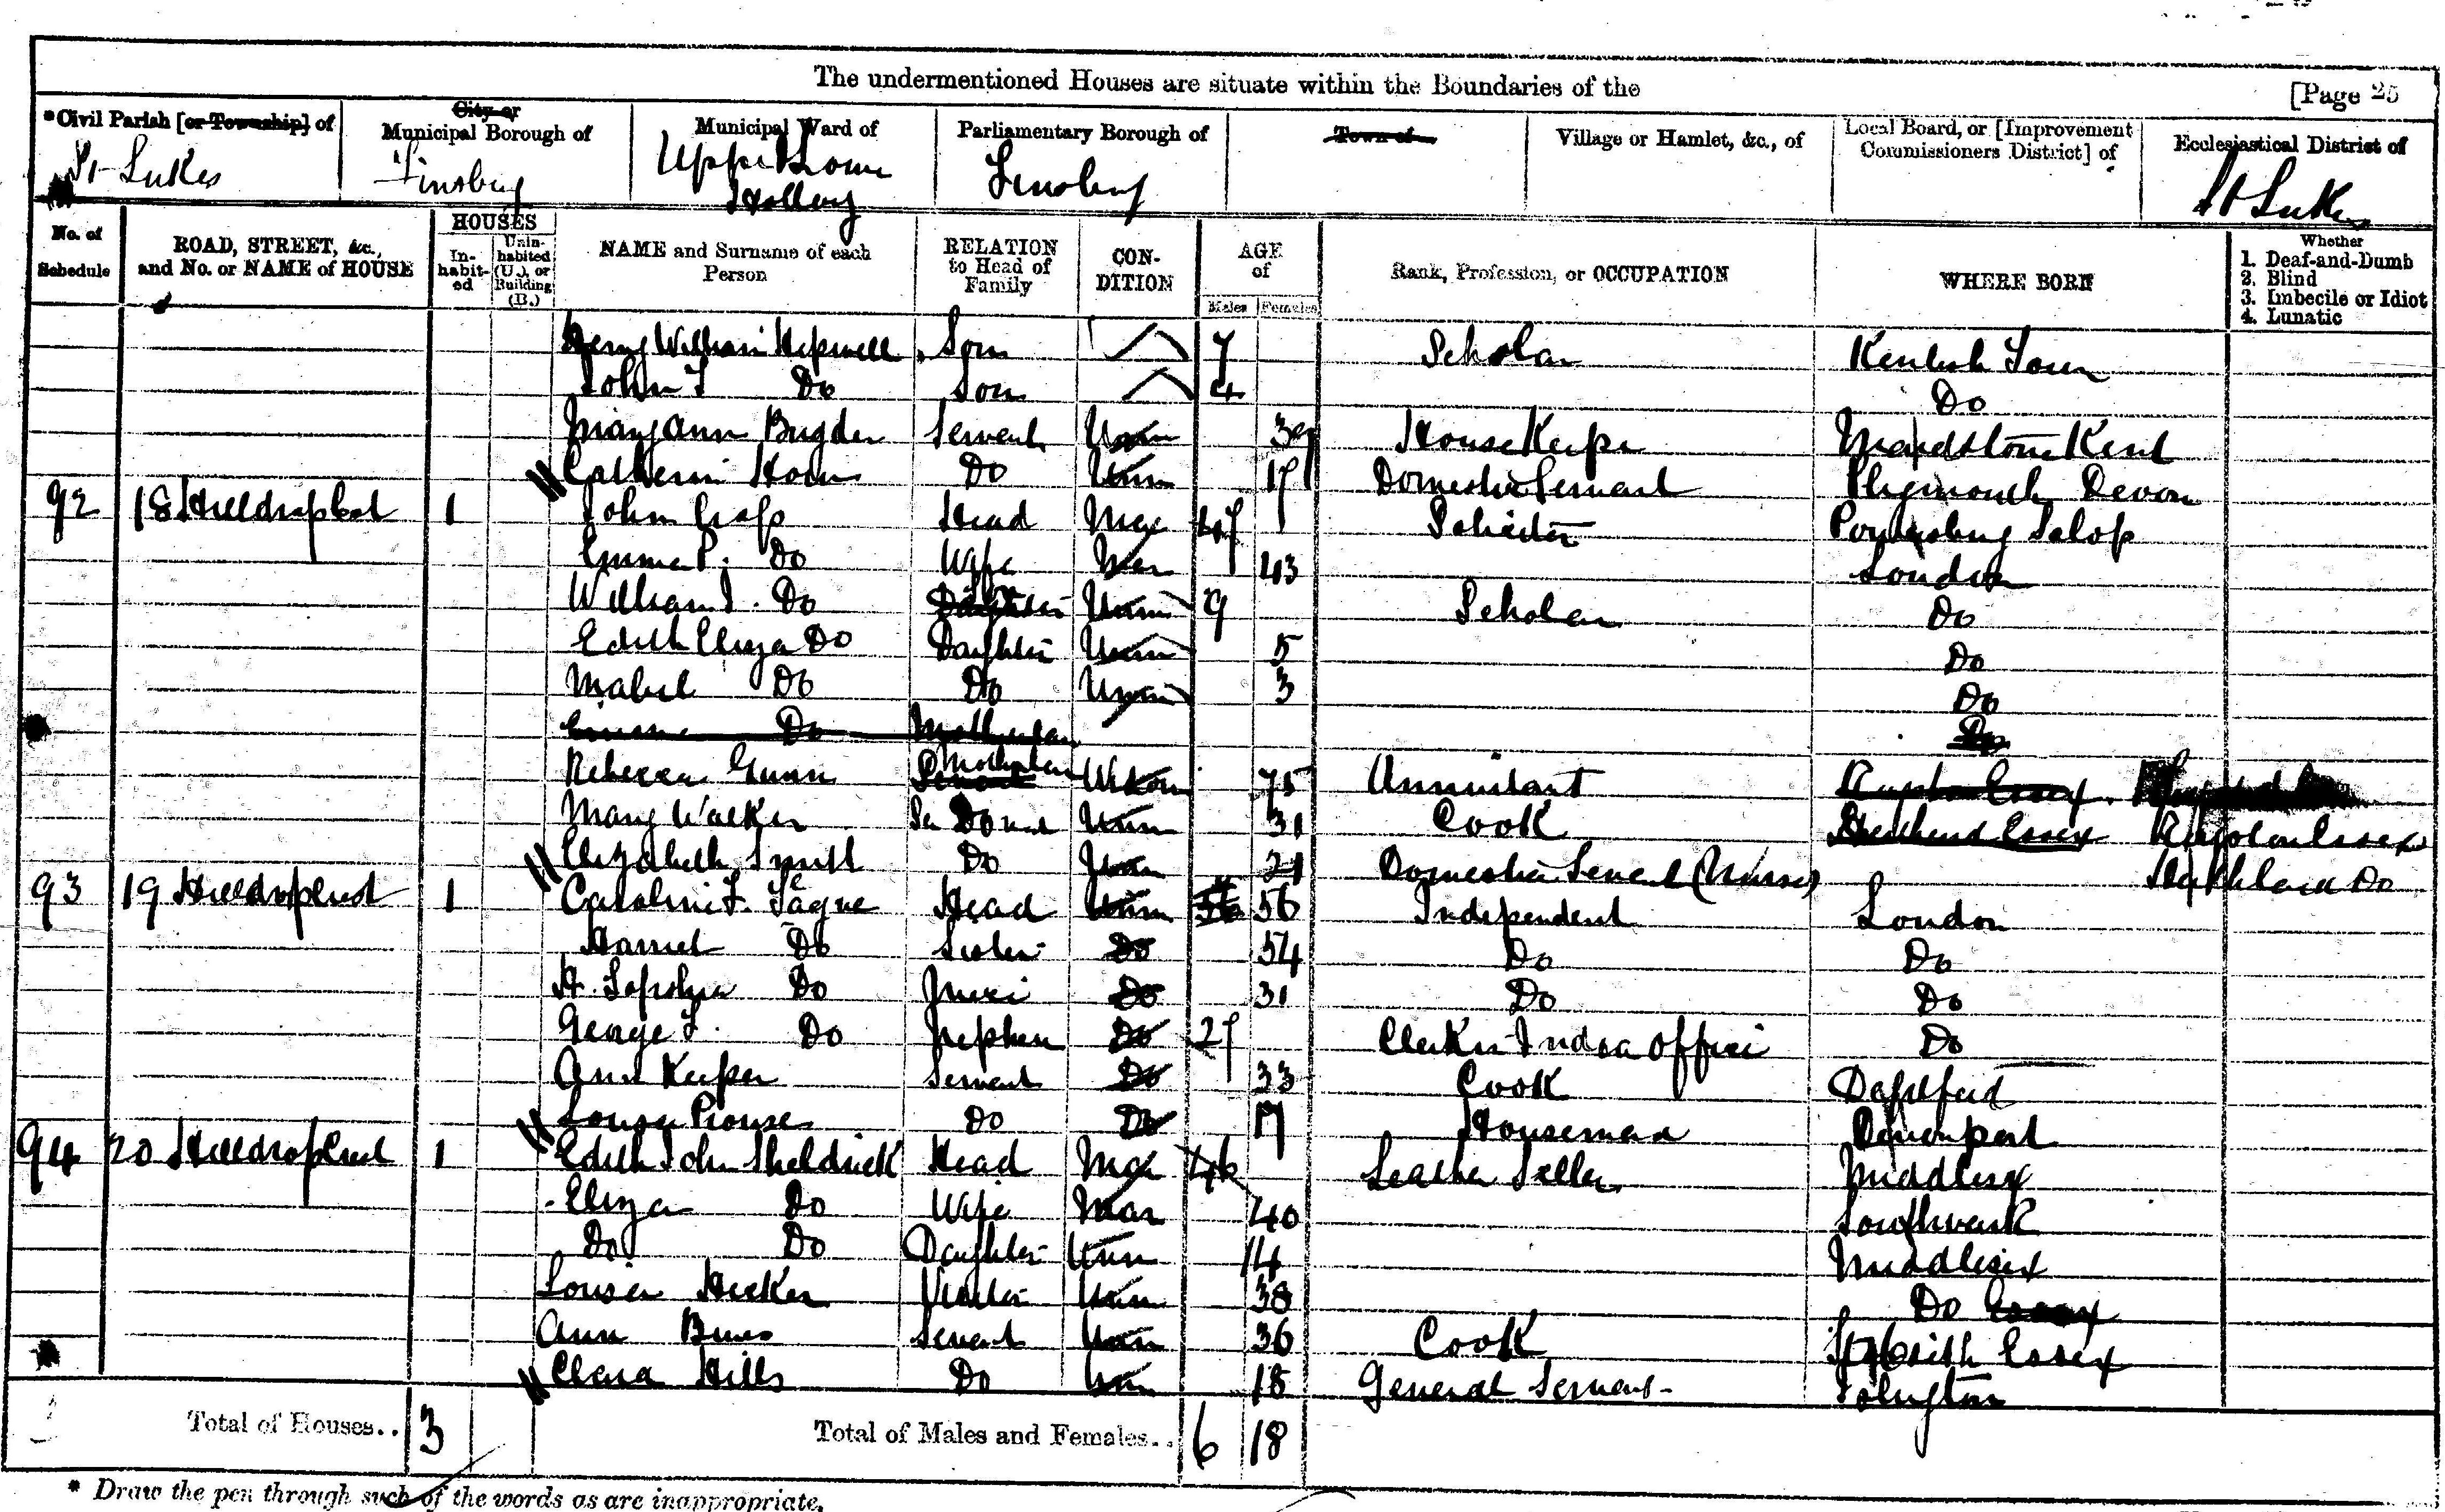 The undermentioned Houses are situate within the Boundaries of the
[Page 25
*Civil Parish [or Township] of
St Lukes
City or Municipal Borough of
Finsbury
Municipal Ward of
Upper
Parliamentary Borough of
Finsbury
Town of
Village or Hamlet, &c., of
Local Board, or [Improvement Commissioners District] of
Ecclesiastical District of
St Lukes
No. of Schedule
ROAD, STREET, &c., and No. or NAME of HOUSE
HOUSES
In-habit-ed
Unin-habited (U.), or Building (B.)
NAME and Surname of each Person
RELATION to Head of Family
CON-DITION
AGE of
Males
Females
Rank, Profession, or OCCUPATION
WHERE BORN
Whether
1. Deaf-and-Dumb
2. Blind
3. Imbecile or Idiot
4. Lunatic
Henry William Son 7 Scholar Kentish Town
John T Do Son 4 Do
Mary Ann Bugden Servant Unm 39 House Keeper Maidstone Kent
Catherine Unm 17 Domestic Servant Plymouth Devon
92 18 Hilldrop Crest 1 John Head Mar 47 Solicitor Salop
Emma P. Do Wife Mar 43 London
William J. Do Daughter Unm 9 Scholar Do
Edith Eliza Do Daughter Unm 5 Do
Mabel Do Do Unm 3 Do
Emma Do Do
Rebecca Gunn 75 Annuitant Essex
Mary Walker Do Unm 31 Cook Essex Essex
Elizabeth Smith Do Unm 21 Domestic Servant (Nurse) Do
93 19 Hilldrop Crest 1 Caroline F. Tague Head Unm 56 Independent London
Harriet Do Sister Do 54 Do Do
H. Sophia Do Niece Do 31 Do Do
George F. Do Nephew Do 27 Clerk in India Office Do
Ann Keeper Servant Do 33 Cook
Louisa Prouse Do Do 17 Housemaid Devonport
94 20 Hilldrop Crest 1 John Sheldrick Head Mar 46 Leather Seller Middlesex
Eliza Do Wife Mar 40 Southwark
Do Do Daughter Unm 14 Middlesex
Louisa Visitor Unm 38 Do Essex
Ann Servant Unm 36 Cook St Osith Essex
Clara Hills Do Unm 18 General Servant Islington
Total of Houses.. 3
Total of Males and Females.. 6 18
* Draw the pen through such of the words as are inappropriate.